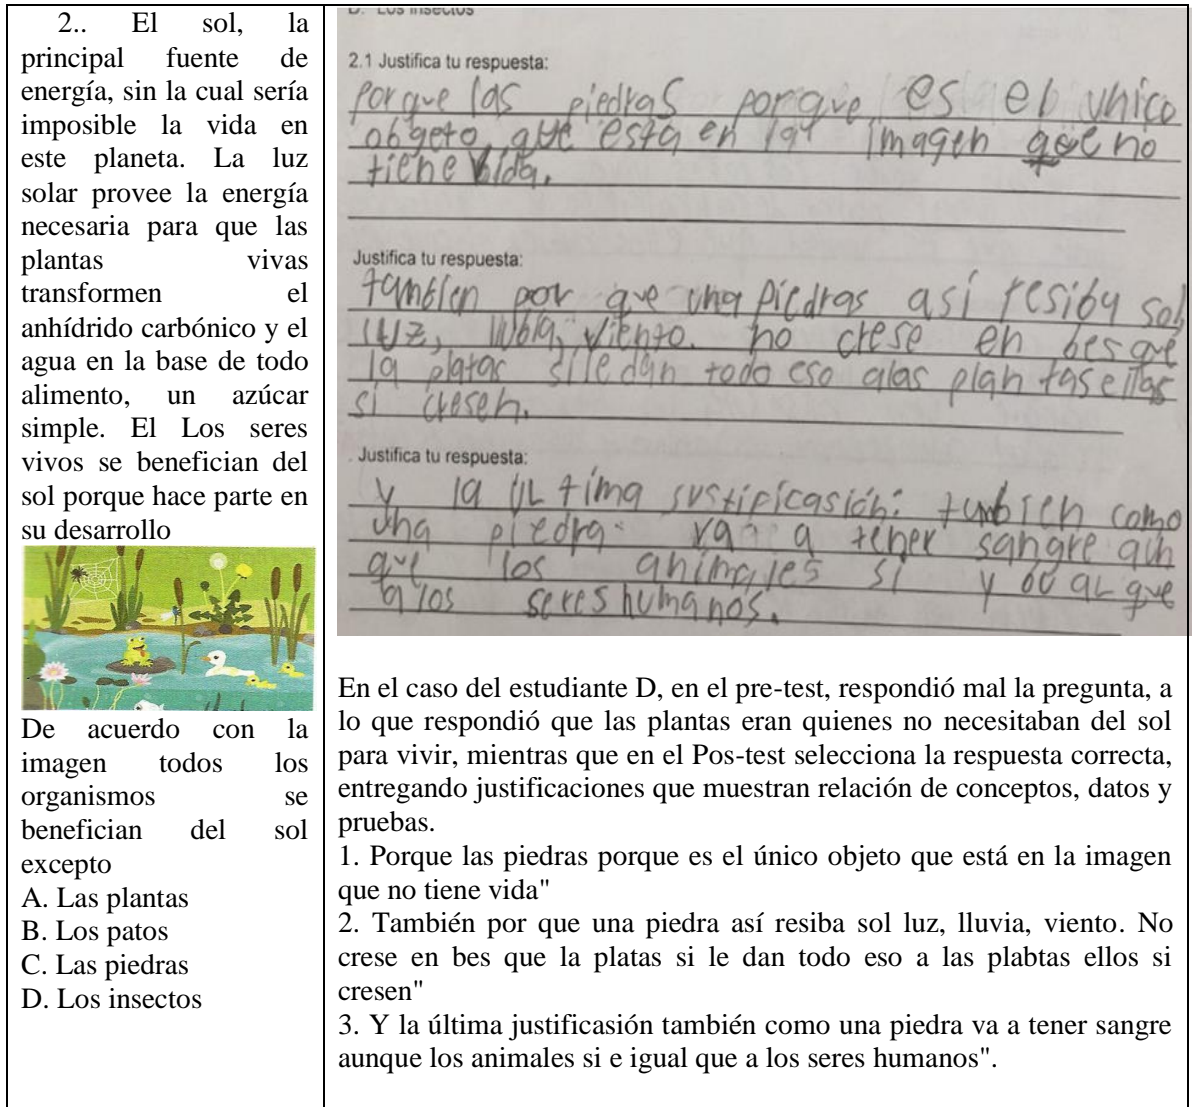 2.. El sol, la
principal fuente de
energía, sin la cual sería
imposible la vida en
este planeta. La luz
solar provee la energía
necesaria para que las
plantas vivas
transformen el
anhídrido carbónico y el
agua en la base de todo
alimento, un azúcar
simple. El Los seres
vivos se benefician del
sol porque hace parte en
su desarrollo
De acuerdo con la
imagen todos los
organismos se
benefician del sol
excepto
A. Las plantas
B. Los patos
C. Las piedras
D. Los insectos
D. Los insectos
2.1 Justifica tu respuesta:
porque las piedras porque es el unico
obgeto que esta en la imagen que no
tiene vida.
Justifica tu respuesta:
tambien por que una piedras así resiba sol,
luz, llubia, viento. no crese en bes que
la platas si le dan todo eso a las plantas ellas
si cresen.
Justifica tu respuesta:
y la última sustificasión: tambien como
una piedra va a tener sangre aun
que los animales si y
a los seres humanos.
En el caso del estudiante D, en el pre-test, respondió mal la pregunta, a
lo que respondió que las plantas eran quienes no necesitaban del sol
para vivir, mientras que en el Pos-test selecciona la respuesta correcta,
entregando justificaciones que muestran relación de conceptos, datos y
pruebas.
1. Porque las piedras porque es el único objeto que está en la imagen
que no tiene vida"
2. También por que una piedra así resiba sol luz, lluvia, viento. No
crese en bes que la platas si le dan todo eso a las plabtas ellos si
cresen"
3. Y la última justificasión también como una piedra va a tener sangre
aunque los animales si e igual que a los seres humanos".